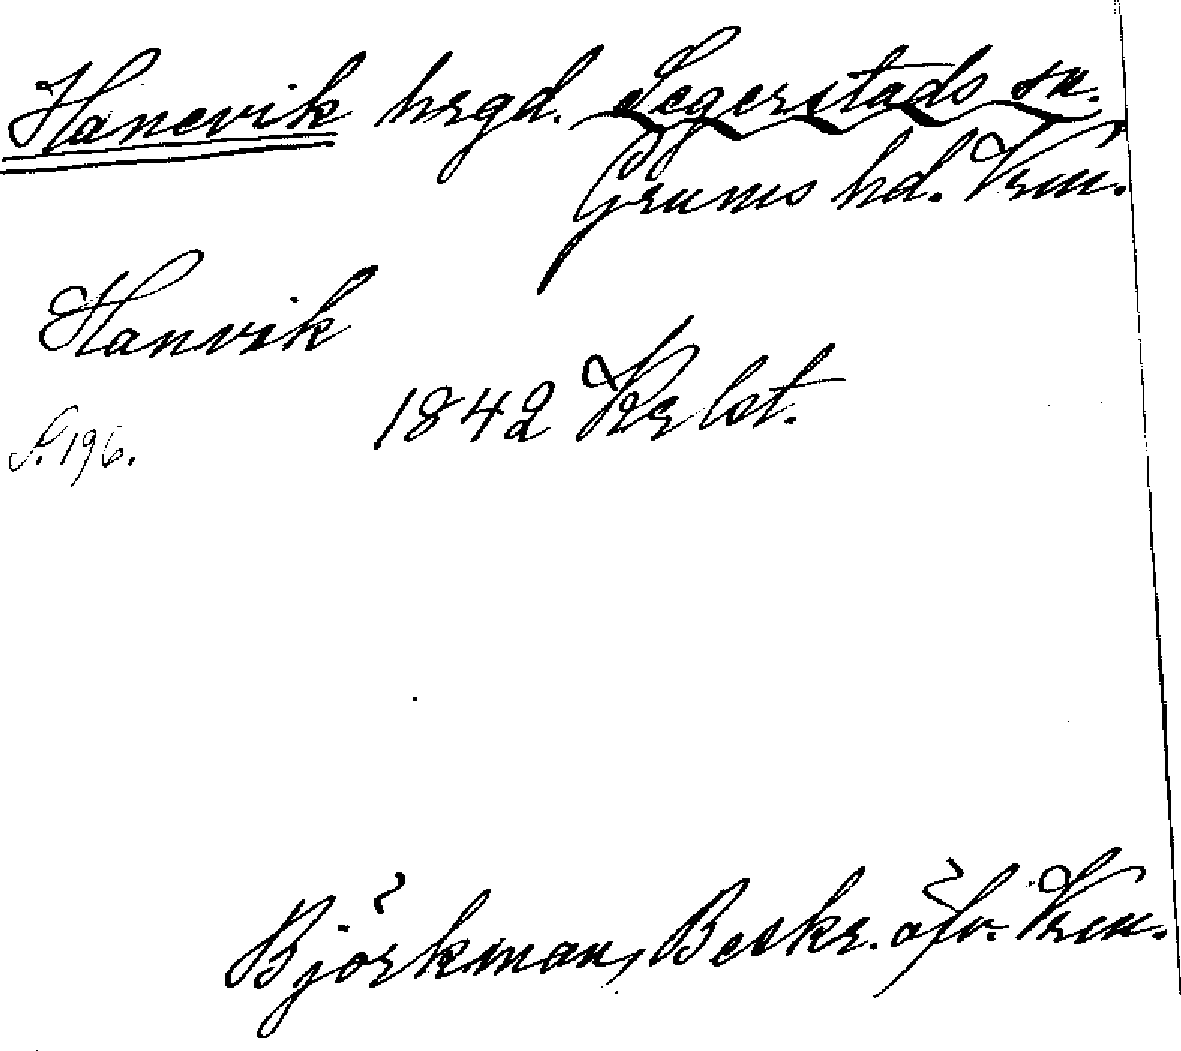 Hanevik hrgd. Segerstads sn.
Grums hd. Vrm.
Hanvik
1842 Krlst.
S. 196.
Björkman, Beskr. öfv. Vrm.